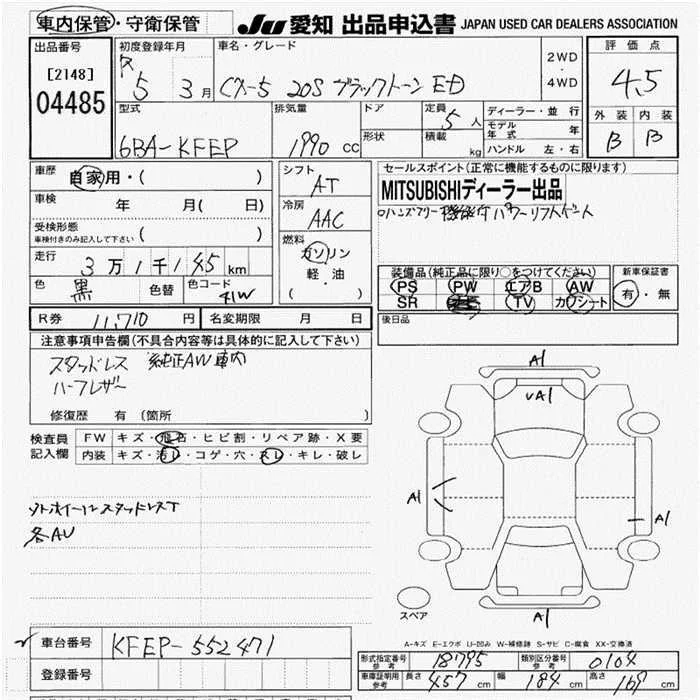 車内保管・守衛保管
JU 愛知 出品申込書 JAPAN USED CAR DEALERS ASSOCIATION
出品番号
[2148]
04485
初度登録年月
R 5 3月
車名・グレード
CX-5 20S ブラックトーン ED
2WD
・
4WD
評価点
4.5
外装 内装
B B
型式
6BA-KFEP
排気量
1990 cc
ドア
形状
定員 5人
積載 kg
ディーラー・並行
モデル年式 年
ハンドル 左・右
車歴
自家用・( )
車検 年 月( 日)
受検形態
車検付きのみ記入して下さい ( )
走行 3万1千145km
色 黒 色替 色コード 41W
シフト AT
冷房 AAC
燃料
ガソリン
軽・油
( )
セールスポイント(正常に機能するものに限ります)
MITSUBISHIディーラー出品
ハンズフリー機能付パワーリフトゲート
装備品(純正品に限り○をつけてください)
PS PW エアB AW
SR TV カワシート
新車保証書
有・無
R券 11,710 円 名変期限 月 日
後日品
注意事項申告欄(不具合内容等は具体的に記入して下さい)
スタッドレス 純正AW車内
ハーフレザー
修復歴 有 (箇所 )
検査員記入欄
FW キズ・飛石・ヒビ割・リペア跡・X要
内装 キズ・汚レ・コゲ・穴・スレ・キレ・破レ
ソトホイールスタッドレスT
各AU
A1
VA1
A1
A1
A1
スペア
A-キズ E-エクボ U-凹み W-補修跡 S-サビ C-腐食 XX-交換済
車台番号 KFEP-552471
登録番号
形式指定番号 参考 18795 類別区分番号 参考 0104
車庫証明用 参考 長さ 457 cm 幅 184 cm 高さ 169 cm